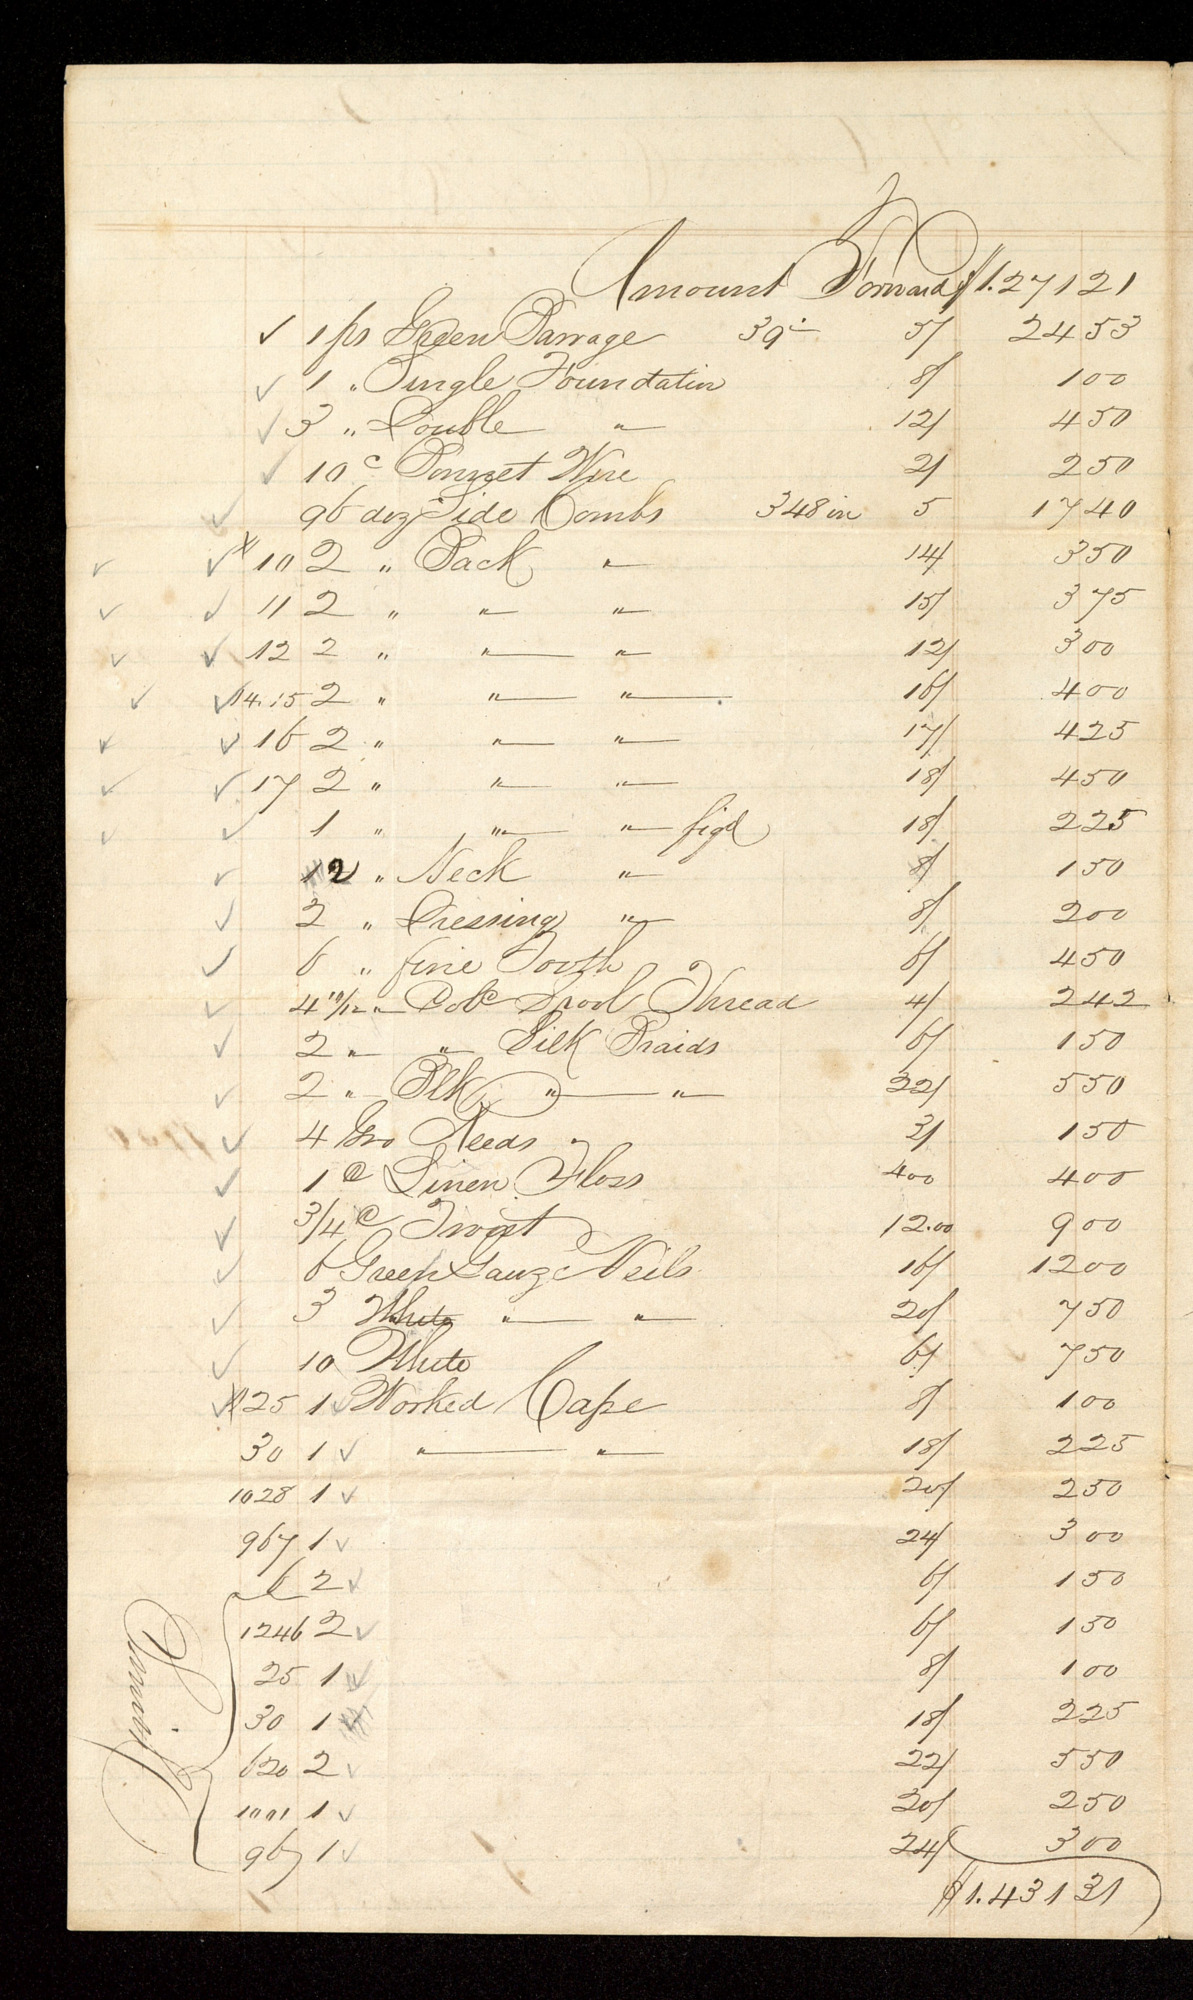 Amount Forward $1.271 21
1 ps Green Barrage 39" 5/ 24 53
1 " Single Foundatin 8/ 1 00
3 " Double " 12/ 4 50
10 c Bonnet Wire 2/ 2 50
96 doz Side Combs 348 in 5 17 40
# 10 2 " Back " 14/ 3 50
11 2 " " " 15/ 3 75
12 2 " " " 12/ 3 00
14.15 2 " " " 16/ 4 00
16 2 " " " 17/ 4 25
17 2 " " " 18/ 4 50
1 " " " figd 18/ 2 25
12 " Neck " 8/ 1 50
2 " Dressing " 8/ 2 00
6 " fine Tooth 6/ 4 50
4 10/12 " Cold Spool Thread 4/ 2 42
2 " " Silk Braids 6/ 1 50
2 " Blk " " 22/ 5 50
4 Gro Reeds 3/ 1 50
1 lb Linen Floss 4 00 4 00
3/4 lb Twist 12.00 9 00
6 Green Gauze Veils 16/ 12 00
3 White " " 20/ 7 50
10 White 6/ 7 50
# 25 1 Worked Cape 8/ 1 00
30 1 " " 18/ 2 25
1028 1 20/ 2 50
967 1 24/ 3 00
6 2 6/ 1 50
1246 2 6/ 1 50
25 1 8/ 1 00
30 1 18/ 2 25
620 2 22/ 5 50
1001 1 20/ 2 50
967 1 24/ 3 00
$1.431 31